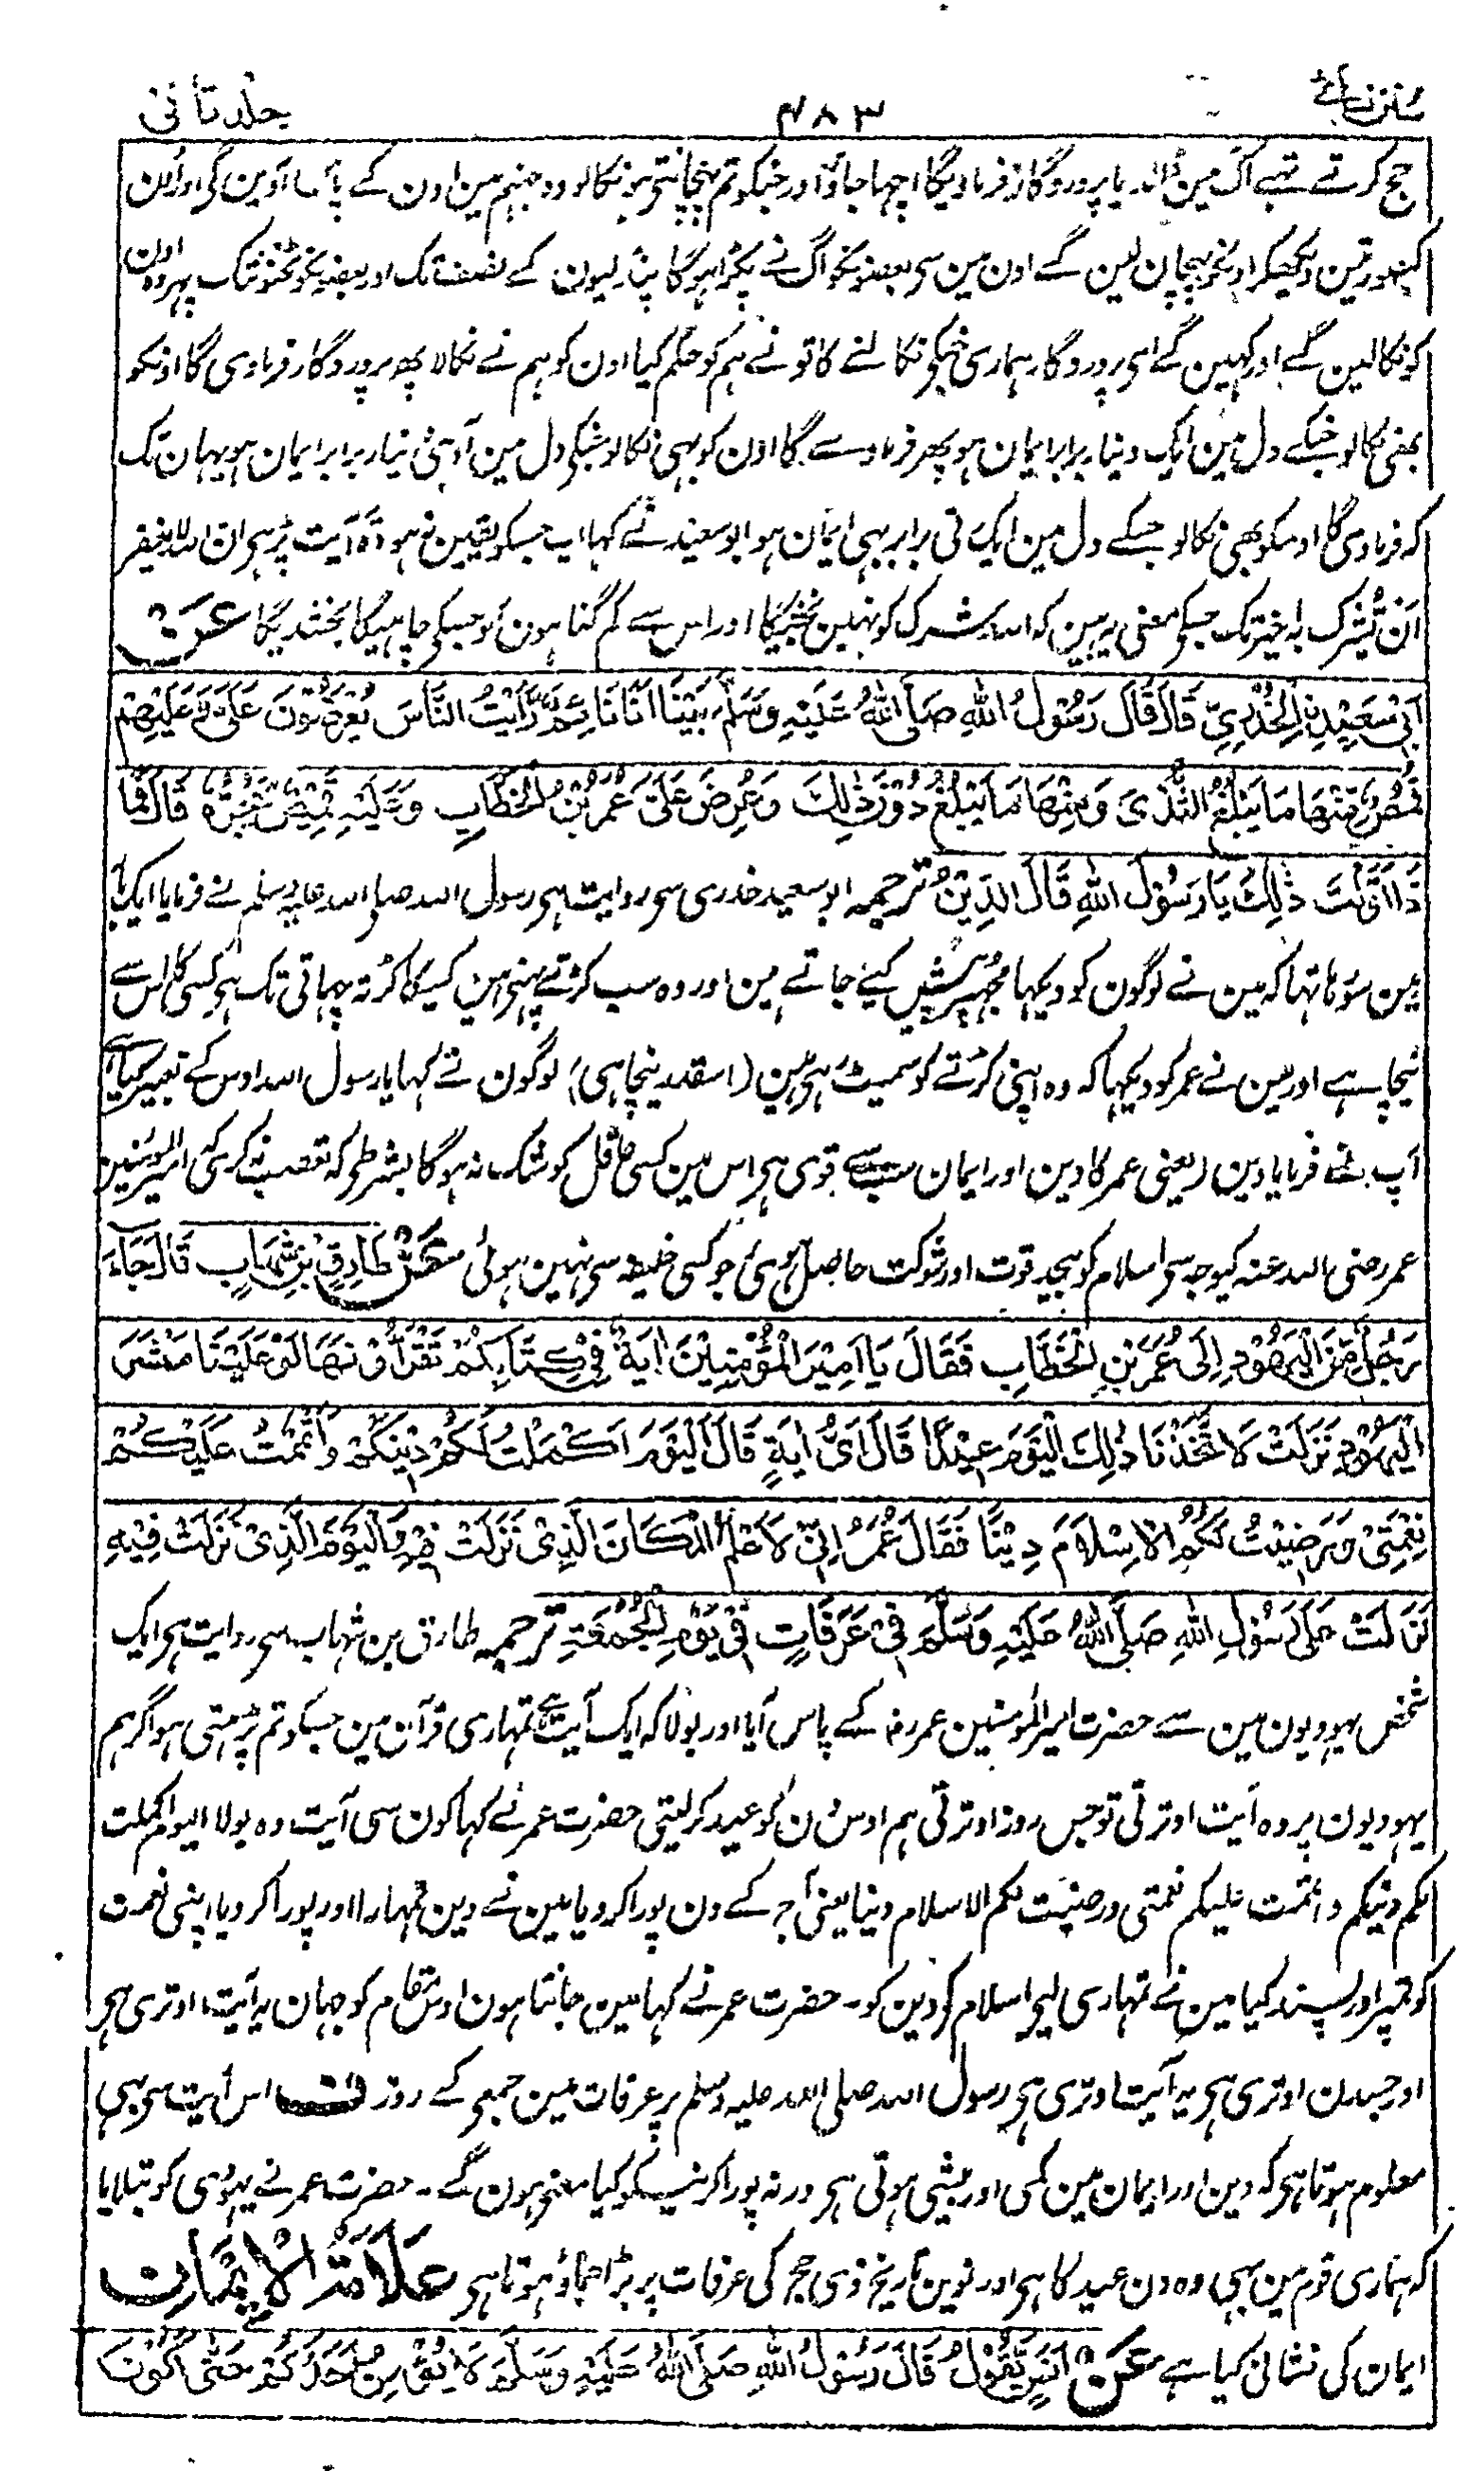 سنن نسائے ۴۸۳ جلد ثانی
حج کرتے تھے آگ مین ڈالدیا پروردگار فرماویگا اچھا جاؤ اور جنکو تم پہچانتے ہو نکالو وہ جہنم مین اون کے پاس آوین گی اور اُن
کیصورتین دیکھکر اونکو پہچان لین گے اون مین سے بعضونکو آگ نے پکڑا ہوگا پنڈلیون کے نصف تک اور بعضونکو ٹخنوتک پہر وہ اون
کو نکالین گے اور کہین گے اے پروردگار ہماری جنکے نکالنے کا تو نے ہم کو حکم کیا اون کو ہم نے نکالا پھر پروردگار فرماوی گا اونکو
بھی نکالو جنکے دل مین ایک دینار برابر ایمان ہو پھر فرماوے گا اون کو بھی نکالو جنکے دل مین آدہی دینار برابر ایمان ہو یہان تک
کہ فرماوی گا اوسکو بھی نکالو جسکے دل مین ایک رتی برابر بہی ایمان ہو ابو سعید نے کہا اب جسکو یقین نہ ہو وہ آیت پڑہے ان اللہ لا یغفر
اَنْ یُّشْرَک بہ اخیر تک جسکے معنی یہ ہین کہ اللہ شرک کو نہین بخشیگا اور اس سے کم گناہون کو جسکے چاہیگا بخشدیگا عَنْ
اَبِیْ سَعِیْدِنِ الْخُدْرِیِّ قَالَ قَالَ رَسُوْلُ اللهِ صَلَّی اللهُ عَلَیْهِ وَسَلَّمَ بَیْنَا اَنَا نَائِمٌ رَاَیْتُ النَّاسَ یُعْرَضُوْنَ عَلَیَّ وَعَلَیْهِمْ
قُمُصٌ مِنْهَا مَا یَبْلُغُ الثَّدْیَ وَمِنْهَا مَا یَبْلُغُ دُوْنَ ذٰلِکَ وَعُرِضَ عَلَیَّ عُمَرُ بْنُ الْخَطَّابِ وَعَلَیْهِ قَمِیْصٌ یَجُرُّهٗ قَالَ فَمَا
ذَا اَوَّلْتَ ذٰلِکَ یَا رَسُوْلَ اللهِ قَالَ الدِّیْنُ ترجمہ ابو سعید خدری سے روایت ہے رسول اللہ صلی اللہ علیہ وسلم نے فرمایا ایک بار
مین سوتا تہا کہ مین نے لوگون کو دیکہا مجہپر پیش کیے جاتے ہین اور وہ سب کرتے پہنے ہین کیسکا کرتہ چہاتی تک ہے کسی کا اس سے
نیچا ہے اور مین نے عمر کو دیکہا کہ وہ اپنی کرتے کو سمیٹ رہے ہین (اسقدر نیچا ہی) لوگون نے کہا یا رسول اللہ اوس کے تعبیر کیا ہے
آپ نے فرمایا دین (یعنی عمر کا دین اور ایمان سب سے قوی ہے اس مین کسی عاقل کو شک نہ ہوگا بشرطیکہ تعصب نہ کرے کہ امیر المومنین
عمر رضی اللہ عنہ کیوجہ سے اسلام کو بیحد قوت اور شوکت حاصل ہوئی جو کسی خلیفہ سے نہین ہوئی عَنْ طَارِقِ بْنِ شِهَابٍ قَالَ جَاءَ
رَجُلٌ مِّنَ الْیَهُوْدِ اِلٰی عُمَرَ بْنِ الْخَطَّابِ فَقَالَ یَا اَمِیْرَ الْمُؤْمِنِیْنَ اٰیَةٌ فِیْ کِتَابِکُمْ تَقْرَأُوْنَهَا لَوْ عَلَیْنَا مَعْشَرَ
الْیَهُوْدِ نَزَلَتْ لَاتَّخَذْنَا ذٰلِکَ الْیَوْمَ عِیْدًا قَالَ اَیُّ اٰیَةٍ قَالَ اَلْیَوْمَ اَکْمَلْتُ لَکُمْ دِیْنَکُمْ وَاَتْمَمْتُ عَلَیْکُمْ
نِعْمَتِیْ وَرَضِیْتُ لَکُمُ الْاِسْلَامَ دِیْنًا فَقَالَ عُمَرُ اِنِّیْ لَاَعْلَمُ الْمَکَانَ الَّذِیْ نَزَلَتْ فِیْهِ وَالْیَوْمَ الَّذِیْ نَزَلَتْ فِیْهِ
نَزَلَتْ عَلٰی رَسُوْلِ اللهِ صَلَّی اللهُ عَلَیْهِ وَسَلَّمَ فِیْ عَرَفَاتٍ فِیْ یَوْمِ الْجُمُعَةِ ترجمہ طارق بن شہاب سے روایت ہے ایک
شخص یہودیون مین سے حضرت امیر المومنین عمر رض کے پاس آیا اور بولا کہ ایک آیت ہے تمہاری قرآن مین جسکو تم پڑہتی ہو اگر ہم
یہودیون پر وہ آیت اوترتی تو جس روز اوترتی ہم اوس دن کو عید کر لیتی حضرت عمر نے کہا کون سی آیت وہ بولا الیوم اکملت
لکم دینکم واتممت علیکم نعمتی ورضیت لکم الاسلام دینا یعنی آج کے دن پورا کر دیا مین نے دین تمہارا اور پورا کر دیا اپنی نعمت
کو تمپر اور پسند کیا مین نے تمہاری لیے اسلام کو دین کو۔ حضرت عمر نے کہا مین جانتا ہون اوس مقام کو جہان یہ آیت اوتری ہے
اور جسدن اوتری ہے یہ آیت اوتری ہے رسول اللہ صلی اللہ علیہ وسلم پر عرفات مین جمعہ کے روز ف اس آیت سے بہی
معلوم ہوتا ہے کہ دین اور ایمان مین کمی اور بیشی ہوتی ہے ورنہ پورا کرنے کو کیا معنے ہون گے۔ حضرت عمر نے یہودی کو بتلایا
کہ ہماری قوم مین بہی وہ دن عید کا ہے اور نوین تاریخ ذی حجہ کی عرفات پر بڑا جماؤ ہوتا ہے عَلَامَةُ الْاِیْمَانِ
ایمان کی نشانی کیا ہے عَنْ اَنَسٍ یَّقُوْلُ قَالَ رَسُوْلُ اللهِ صَلَّی اللهُ عَلَیْهِ وَسَلَّمَ لَا یُؤْمِنُ اَحَدُکُمْ حَتّٰی اَکُوْنَ